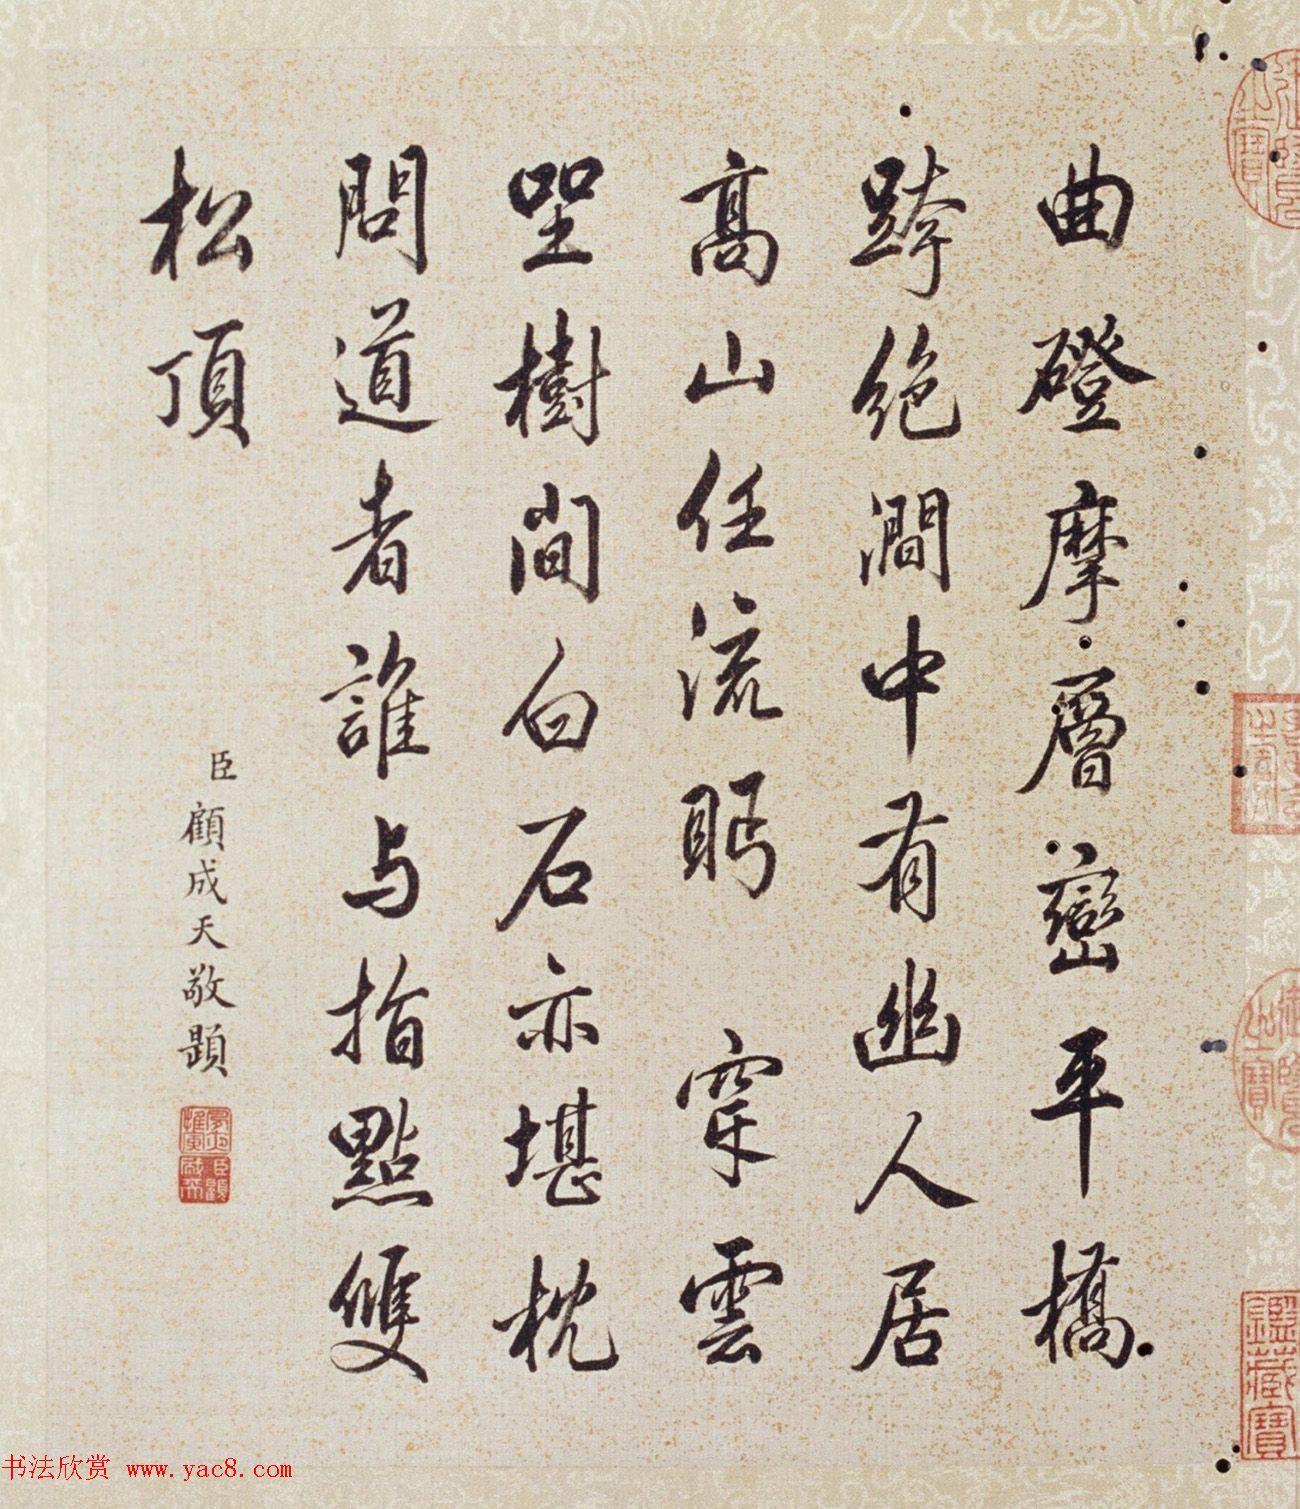 曲磴摩層巒平橋
跨絶澗中有幽人居
高山任流眄穿雲
望樹間白石亦堪枕
問道者誰与指點雙
松頂
臣顧成天敬題
鑑藏寶
书法欣赏 www.yac8.com